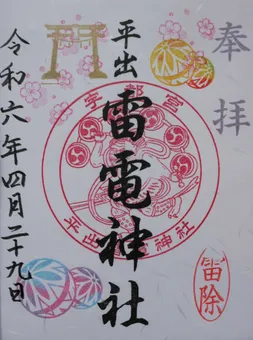 奉拝
平出
雷電神社
宇都宮
平出雷電神社
令和六年四月二十九日
雷除